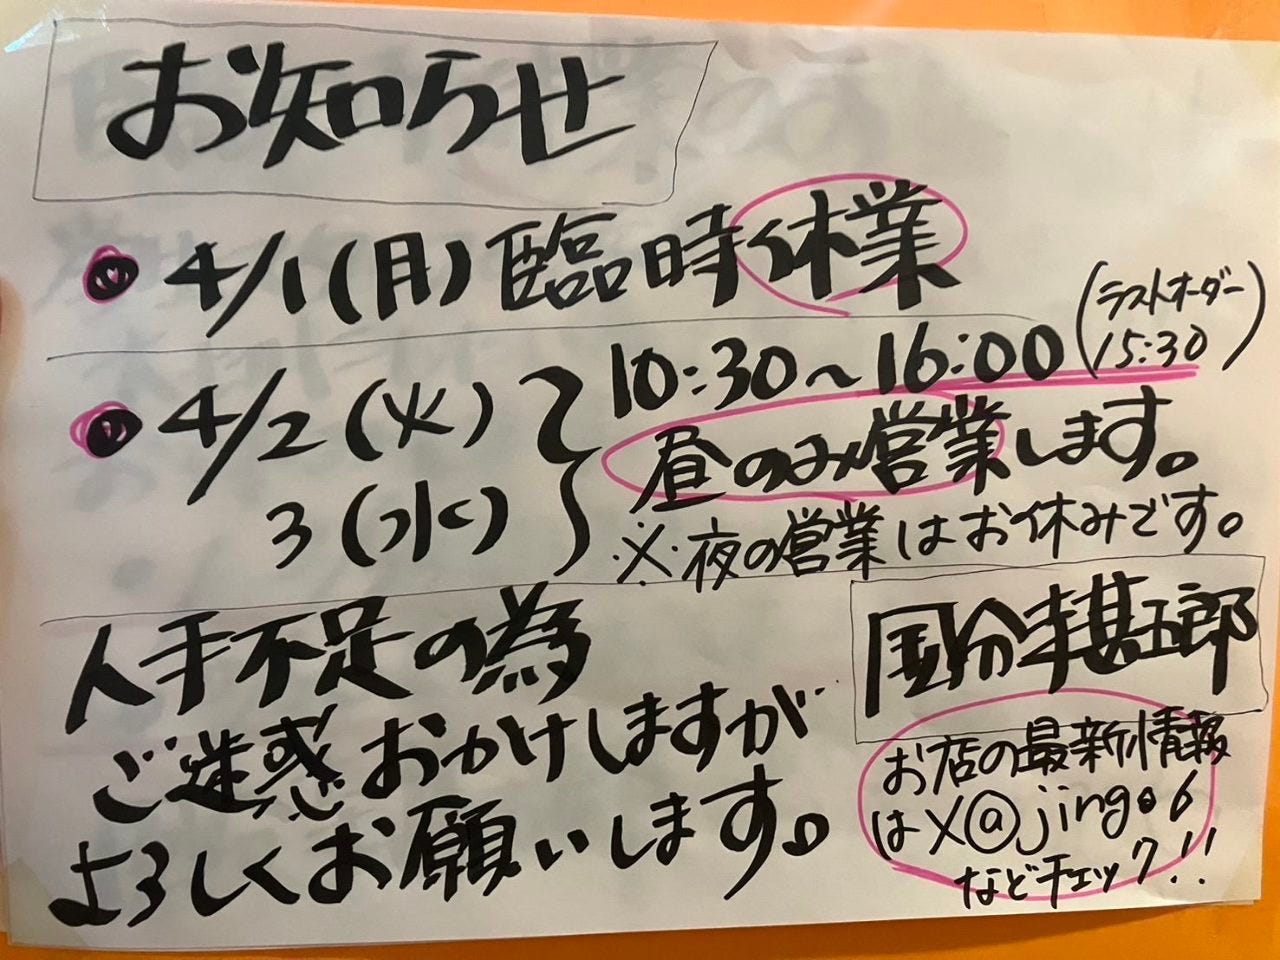 お知らせ
4/1(月)臨時休業
4/2(火)
3(水)
10:30～16:00
(ラストオーダー
15:30)
昼のみ営業します。
※夜の営業はお休みです。
人手不足の為
ご迷惑おかけしますが
よろしくお願いします。
国分寺甚五郎
お店の最新情報
はX@jingo6
などチェック!!